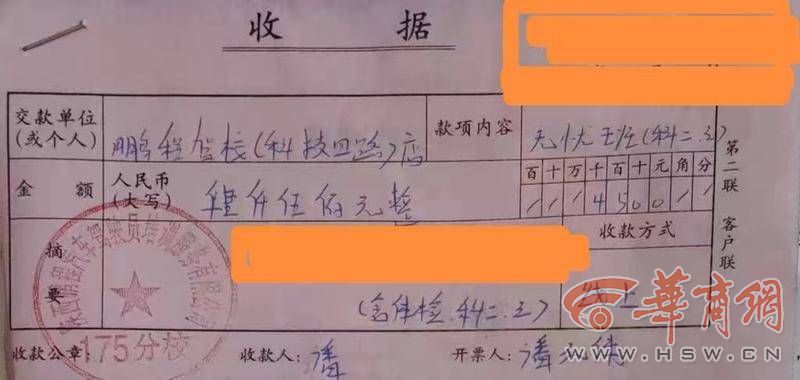 收 据
交款单位
(或个人)
鹏程驾校(科技四路)店
款项内容
无忧班(科二.三)
金 额
人民币
(大写)
肆仟伍佰元整
百十万千百十元角分
4500
摘
要
(含体检.科二.三)
收款方式
线上
第二联 客户联
175分校
收款公章:
收款人: 潘
开票人: 潘
华商网
WWW.HSW.CN